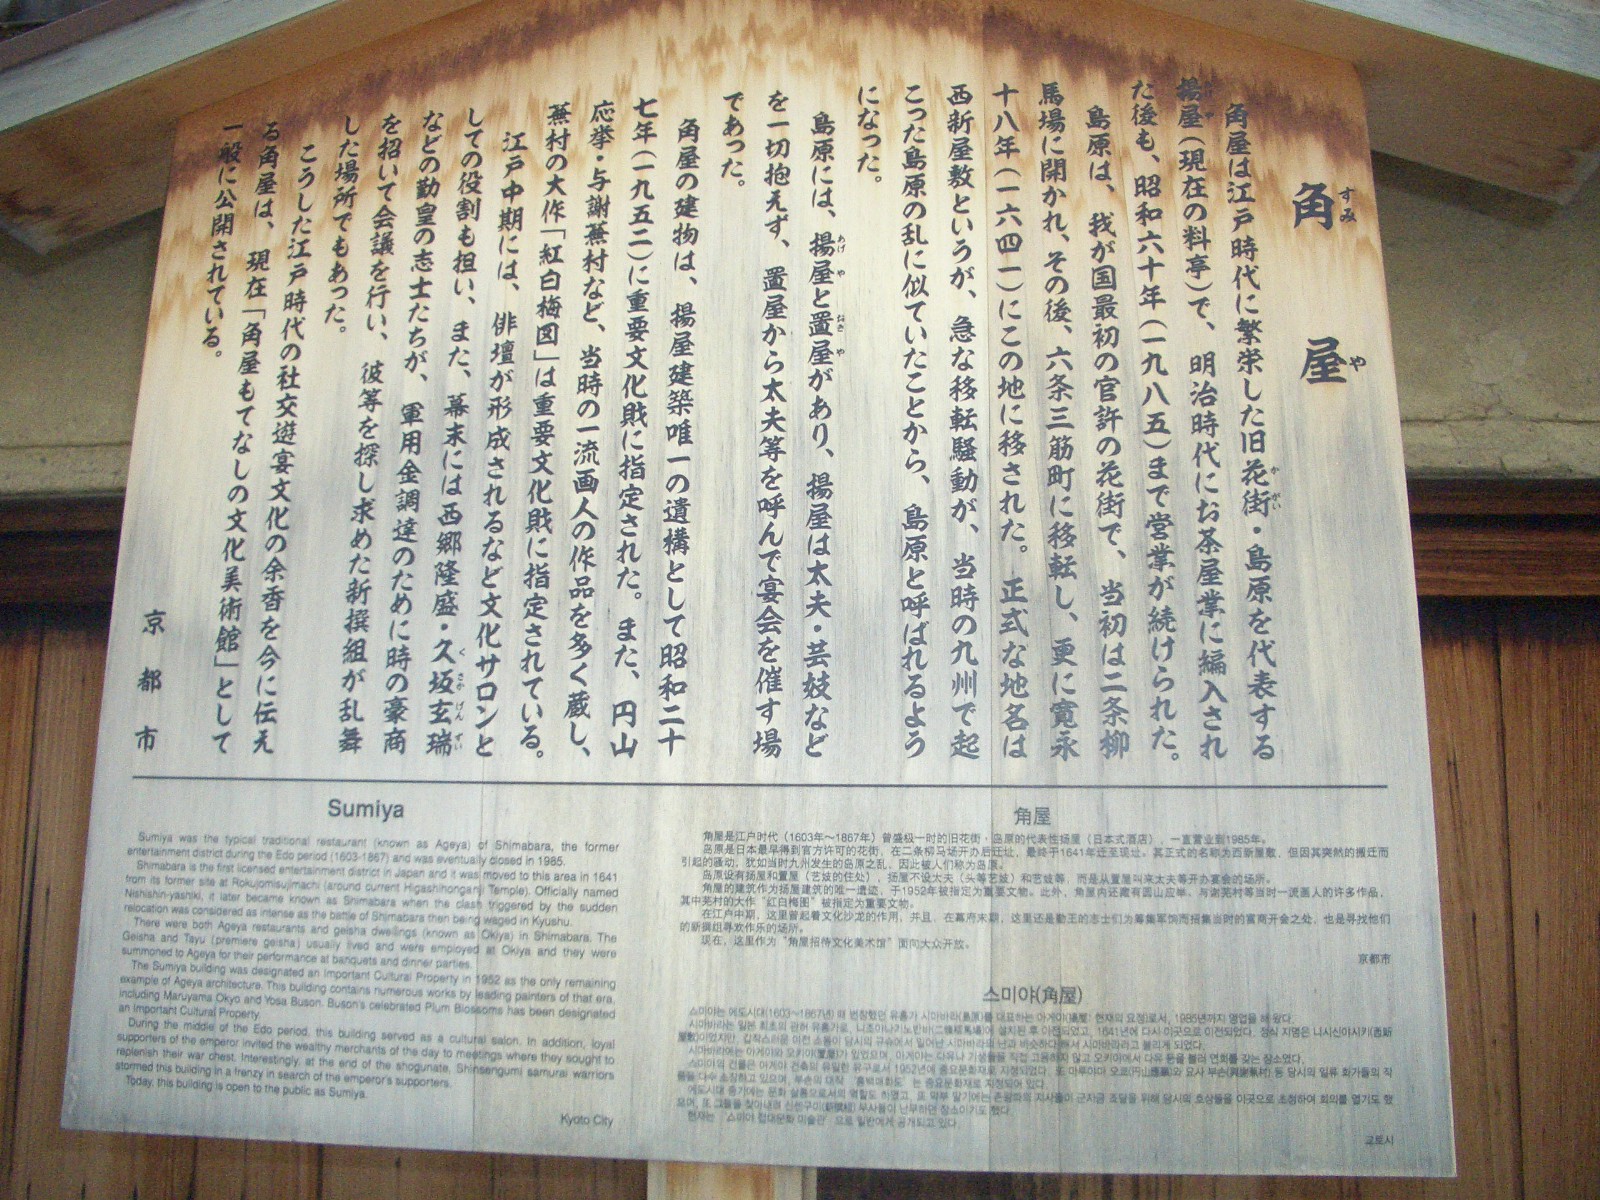 角屋
すみ や
角屋は江戸時代に繁栄した旧花街・島原を代表する
揚屋(現在の料亭)で、明治時代にお茶屋業に編入され
た後も、昭和六十年(一九八五)まで営業が続けられた。
島原は、我が国最初の官許の花街で、当初は二条柳
馬場に開かれ、その後、六条三筋町に移転し、更に寛永
十八年(一六四一)にこの地に移された。正式な地名は
西新屋敷というが、急な移転騒動が、当時の九州で起
こった島原の乱に似ていたことから、島原と呼ばれるよう
になった。
島原には、揚屋と置屋があり、揚屋は太夫・芸妓など
を一切抱えず、置屋から太夫等を呼んで宴会を催す場
であった。
角屋の建物は、揚屋建築唯一の遺構として昭和二十
七年(一九五二)に重要文化財に指定された。また、円山
応挙・与謝蕪村など、当時の一流画人の作品を多く蔵し、
蕪村の大作「紅白梅図」は重要文化財に指定されている。
江戸中期には、俳壇が形成されるなど文化サロンと
しての役割も担い、また、幕末には西郷隆盛・久坂玄瑞
などの勤皇の志士たちが、軍用金調達のために時の豪商
を招いて会議を行い、彼等を探し求めた新撰組が乱舞
した場所でもあった。
こうした江戸時代の社交遊宴文化の余香を今に伝え
る角屋は、現在「角屋もてなしの文化美術館」として
一般に公開されている。
京都市
Sumiya
Sumiya was the typical traditional restaurant (known as Ageya) of Shimabara, the former
entertainment district during the Edo period (1603-1867) and was eventually closed in 1985.
Shimabara is the first licensed entertainment district in Japan and it was moved to this area in 1641
from its former site at Rokujomisujimachi (around current Higashihonganji Temple). Officially named
Nishishin-yashiki, it later became known as Shimabara when the clash triggered by the sudden
relocation was considered as intense as the battle of Shimabara then being waged in Kyushu.
There were both Ageya restaurants and geisha dwellings (known as Okiya) in Shimabara. The
Geisha and Tayu (premiere geisha) usually lived and were employed at Okiya and they were
summoned to Ageya for their performance at banquets and dinner parties.
The Sumiya building was designated an Important Cultural Property in 1952 as the only remaining
example of Ageya architecture. This building contains numerous works by leading painters of that era,
including Maruyama Okyo and Yosa Buson. Buson's celebrated Plum Blossoms has been designated
an Important Cultural Property.
During the middle of the Edo period, this building served as a cultural salon. In addition, loyal
supporters of the emperor invited the wealthy merchants of the day to meetings where they sought to
replenish their war chest. Interestingly, at the end of the shogunate, Shinsengumi samurai warriors
stormed this building in a frenzy in search of the emperor's supporters.
Today, this building is open to the public as Sumiya.
Kyoto City
角屋
角屋是江户时代(1603年～1867年)曾盛极一时的旧花街・岛原的代表性扬屋(日本式酒店),一直营业到1985年。
岛原是日本最早得到官方许可的花街,在二条柳马场开办后迁址,最终于1641年迁至现址。其正式的名称为西新屋敷,但因其突然的搬迁而
引起的骚动,犹如当时九州发生的岛原之乱,因此被人们称为岛原。
岛原设有扬屋和置屋(艺妓的住处),扬屋不设太夫(头等艺妓)和艺妓等,而是从置屋叫来太夫等开办宴会的场所。
角屋的建筑作为扬屋建筑的唯一遗迹,于1952年被指定为重要文物。此外,角屋内还藏有圆山应举、与谢芜村等当时一流画人的许多作品,
其中芜村的大作"红白梅图"被指定为重要文物。
在江户中期,这里曾起着文化沙龙的作用,并且,在幕府末期,这里还是勤王的志士们为筹集军饷而招集当时的富商开会之处,也是寻找他们
的新撰组寻欢作乐的场所。
现在,这里作为"角屋招待文化美术馆"面向大众开放。
京都市
스미야(角屋)
스미야는 에도시대(1603～1867년) 때 번창했던 유흥가 시마바라(島原)를 대표하는 아게야(揚屋: 현재의 요정)로서, 1985년까지 영업을 해 왔다.
시마바라는 일본 최초의 관허 유흥가로, 니조야나기노반바(二條柳馬場)에 설치된 후 이전되었고, 1641년에 다시 이곳으로 이전되었다. 정식 지명은 니시신야시키(西新
屋敷)이었지만, 갑작스러운 이전 소동이 당시의 규슈에서 일어난 시마바라의 난과 비슷하다 해서 시마바라라고 불리게 되었다.
시마바라에는 아게야와 오키야(置屋)가 있었으며, 아게야는 다유나 기생들을 직접 고용하지 않고 오키야에서 다유 등을 불러 연회를 갖는 장소였다.
스미야의 건물은 아게야 건축의 유일한 유구로서 1952년에 중요문화재로 지정되었다. 또 마루야마 오쿄(円山應擧)와 요사 부손(與謝蕪村) 등 당시의 일류 화가들의 작
품을 다수 소장하고 있으며, 부손의 대작 "홍백매화도"는 중요문화재로 지정되어 있다.
에도시대 중기에는 문화 살롱으로서의 역할도 하였고, 또 막부 말기에는 존왕파의 지사들이 군자금 조달을 위해 당시의 호상들을 이곳으로 초청하여 회의를 열기도 했
으며, 또 그들을 찾아내려 신센구미(新撰組) 무사들이 난무하던 장소이기도 했다.
현재는 "스미야 접대문화 미술관"으로 일반에게 공개되고 있다.
교토시